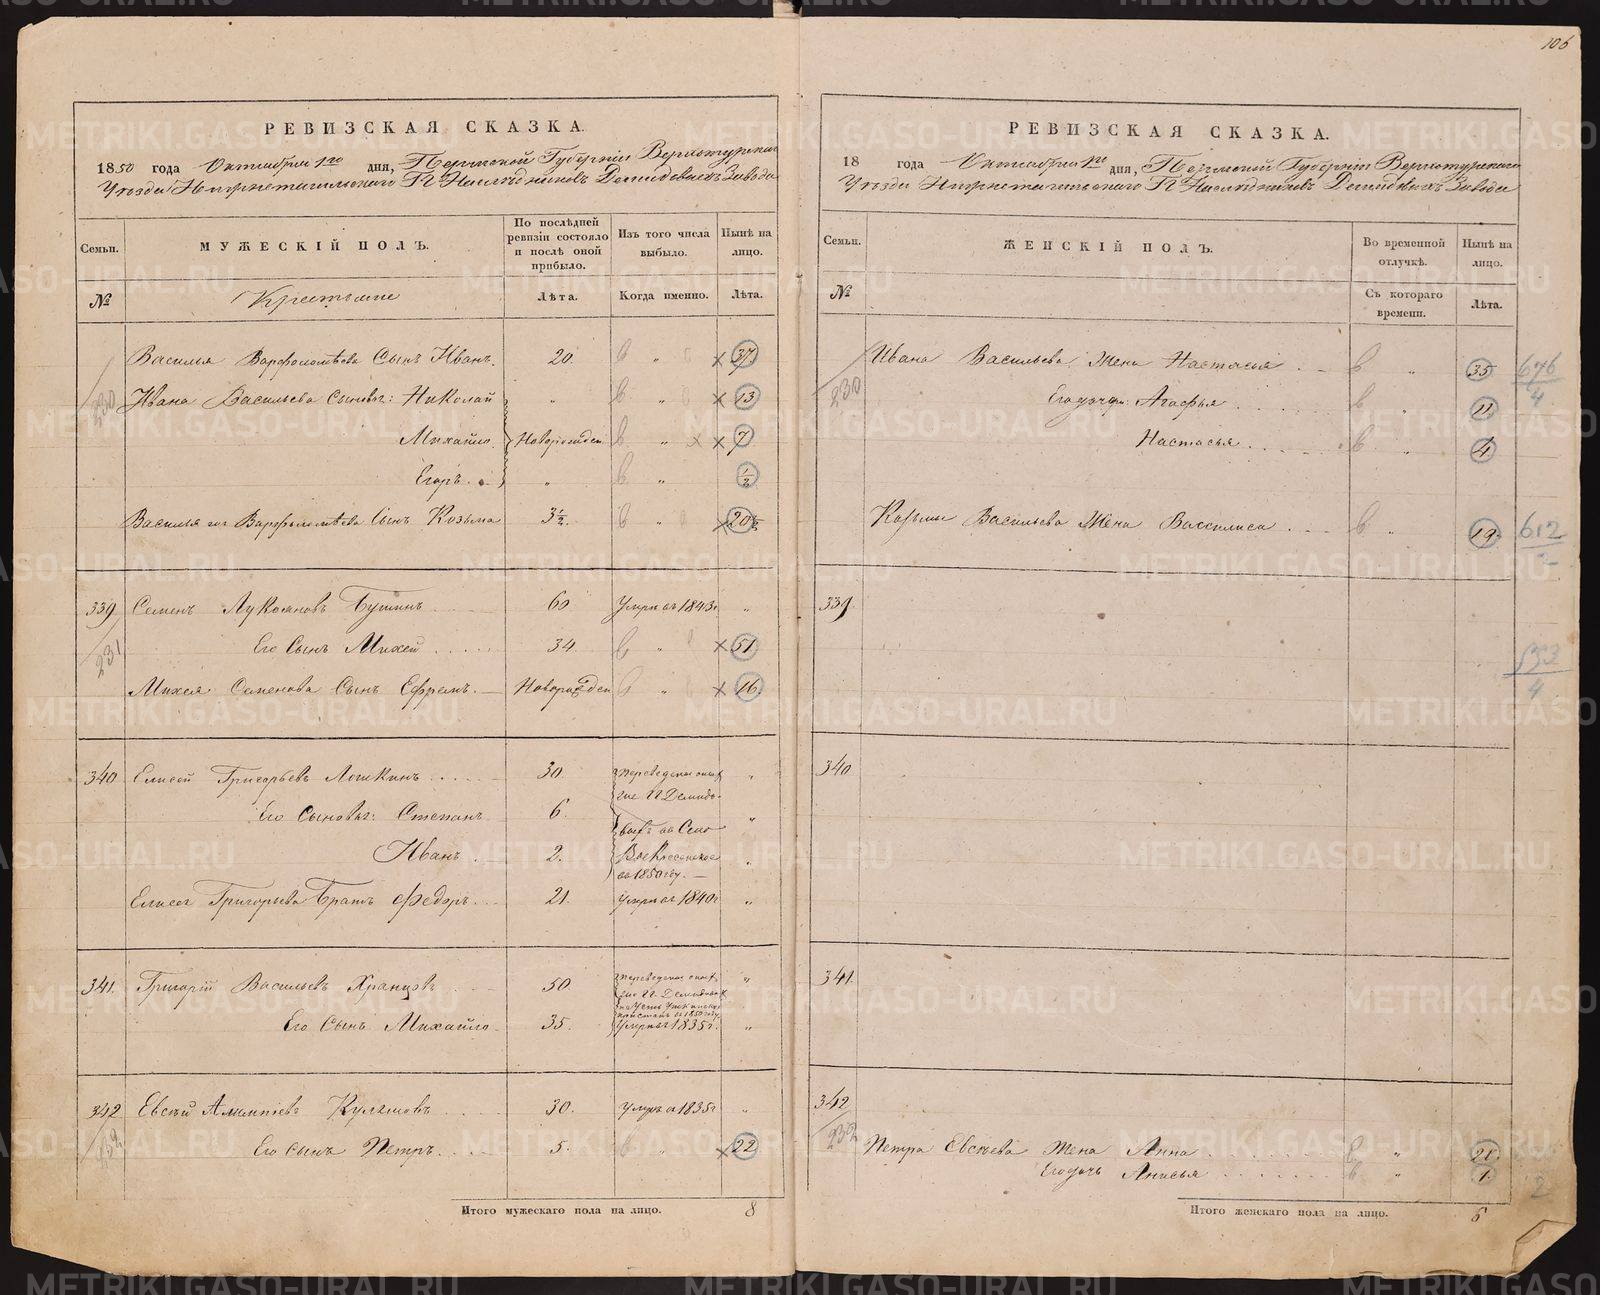 106
РЕВИЗСКАЯ СКАЗКА.
1850 года Октября 1го дня, Пермской Губернiи Верхотурскаго
Уезда Нижнетагильскаго Гг Наследниковъ Демидовыхъ Завода
Семьи. МУЖЕСКIЙ ПОЛЪ. По послѣдней ревизiи состояло и послѣ оной прибыло. Изъ того числа выбыло. Нынѣ на лицо.
№ Крестьяне Лѣта. Когда именно. Лѣта.
230 Василья Варфоломѣева Сынъ Иванъ. 20. „ 37.
Ивана Васильева Сыновья: Николай „ „ 13
Михайло. Новорожден „ 7
Егоръ. „ „ ½
Василья Варфоломѣева Сынъ Козьма 3½. „ 20½
339 Семенъ Лукояновъ Бушинъ 60 Умре въ 1843г „
231 Его Сынъ Михей 34 „ 51
Михея Семенова Сынъ Ефремъ. Новорожден „ 16.
340 Елисей Григорьевъ Лошкинъ 30. „
Его Сыновья: Степанъ 6. „
Иванъ 2. „
въ 1850 году.
Елисея Григорьева Братъ Федоръ 21. Умре въ 1840г „
341. Григорiй Васильевъ Храпцовъ 50. „
Его Сынъ Михайло 35. Умре въ 1835г. „
342 Евсѣй Кулешовъ 30. Умре въ 1835г „
232 Его сынъ Петръ 5. „ 22
Итого мужескаго пола на лицо. 8
РЕВИЗСКАЯ СКАЗКА.
18 года Октября 1го дня, Пермской Губернiи Верхотурскаго
Уезда Нижнетагильскаго Гг Наследниковъ Демидовыхъ Завода
Семьи. ЖЕНСКIЙ ПОЛЪ. Во временной отлучкѣ. Нынѣ на лицо.
№ Съ котораго времени. Лѣта.
230 Ивана Васильева Жена Настасья „ 35 676/4
Его дочери: Агафья „ 11
Настасья „ 4
Козьмы Васильева Жена Василиса „ 19. 612
339.
533/4
340
341.
342
232 Петра Евсѣева Жена Анна „ 21.
Его дочь Анисья „ 1. 2
Итого женскаго пола на лицо. 6
METRIKI.GASO-URAL.RU